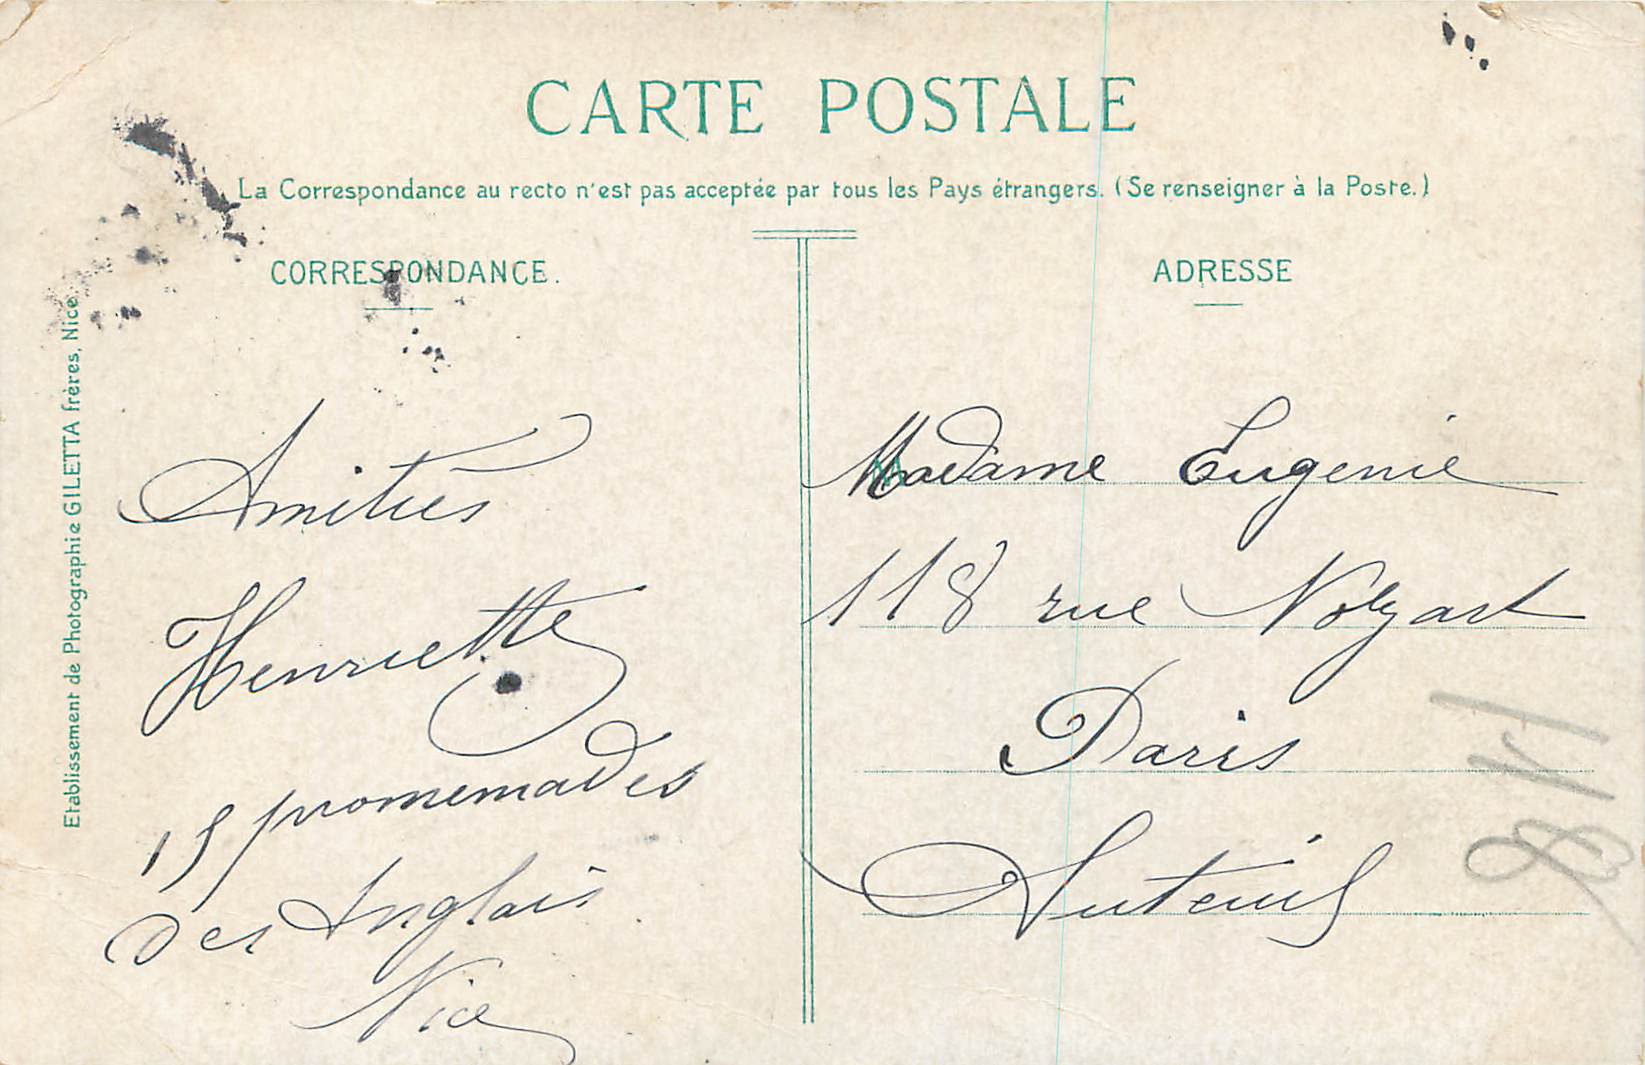 CARTE POSTALE
La Correspondance au recto n'est pas acceptée par tous les Pays étrangers. (Se renseigner à la Poste.)
CORRESPONDANCE.
Amitiés
Henriette
15 promenades
des Anglais
Nice
ADRESSE
M
Madame Eugenie
118 rue Mozart
Paris
Auteuil
118
Etablissement de Photographie GILETTA frères, Nice